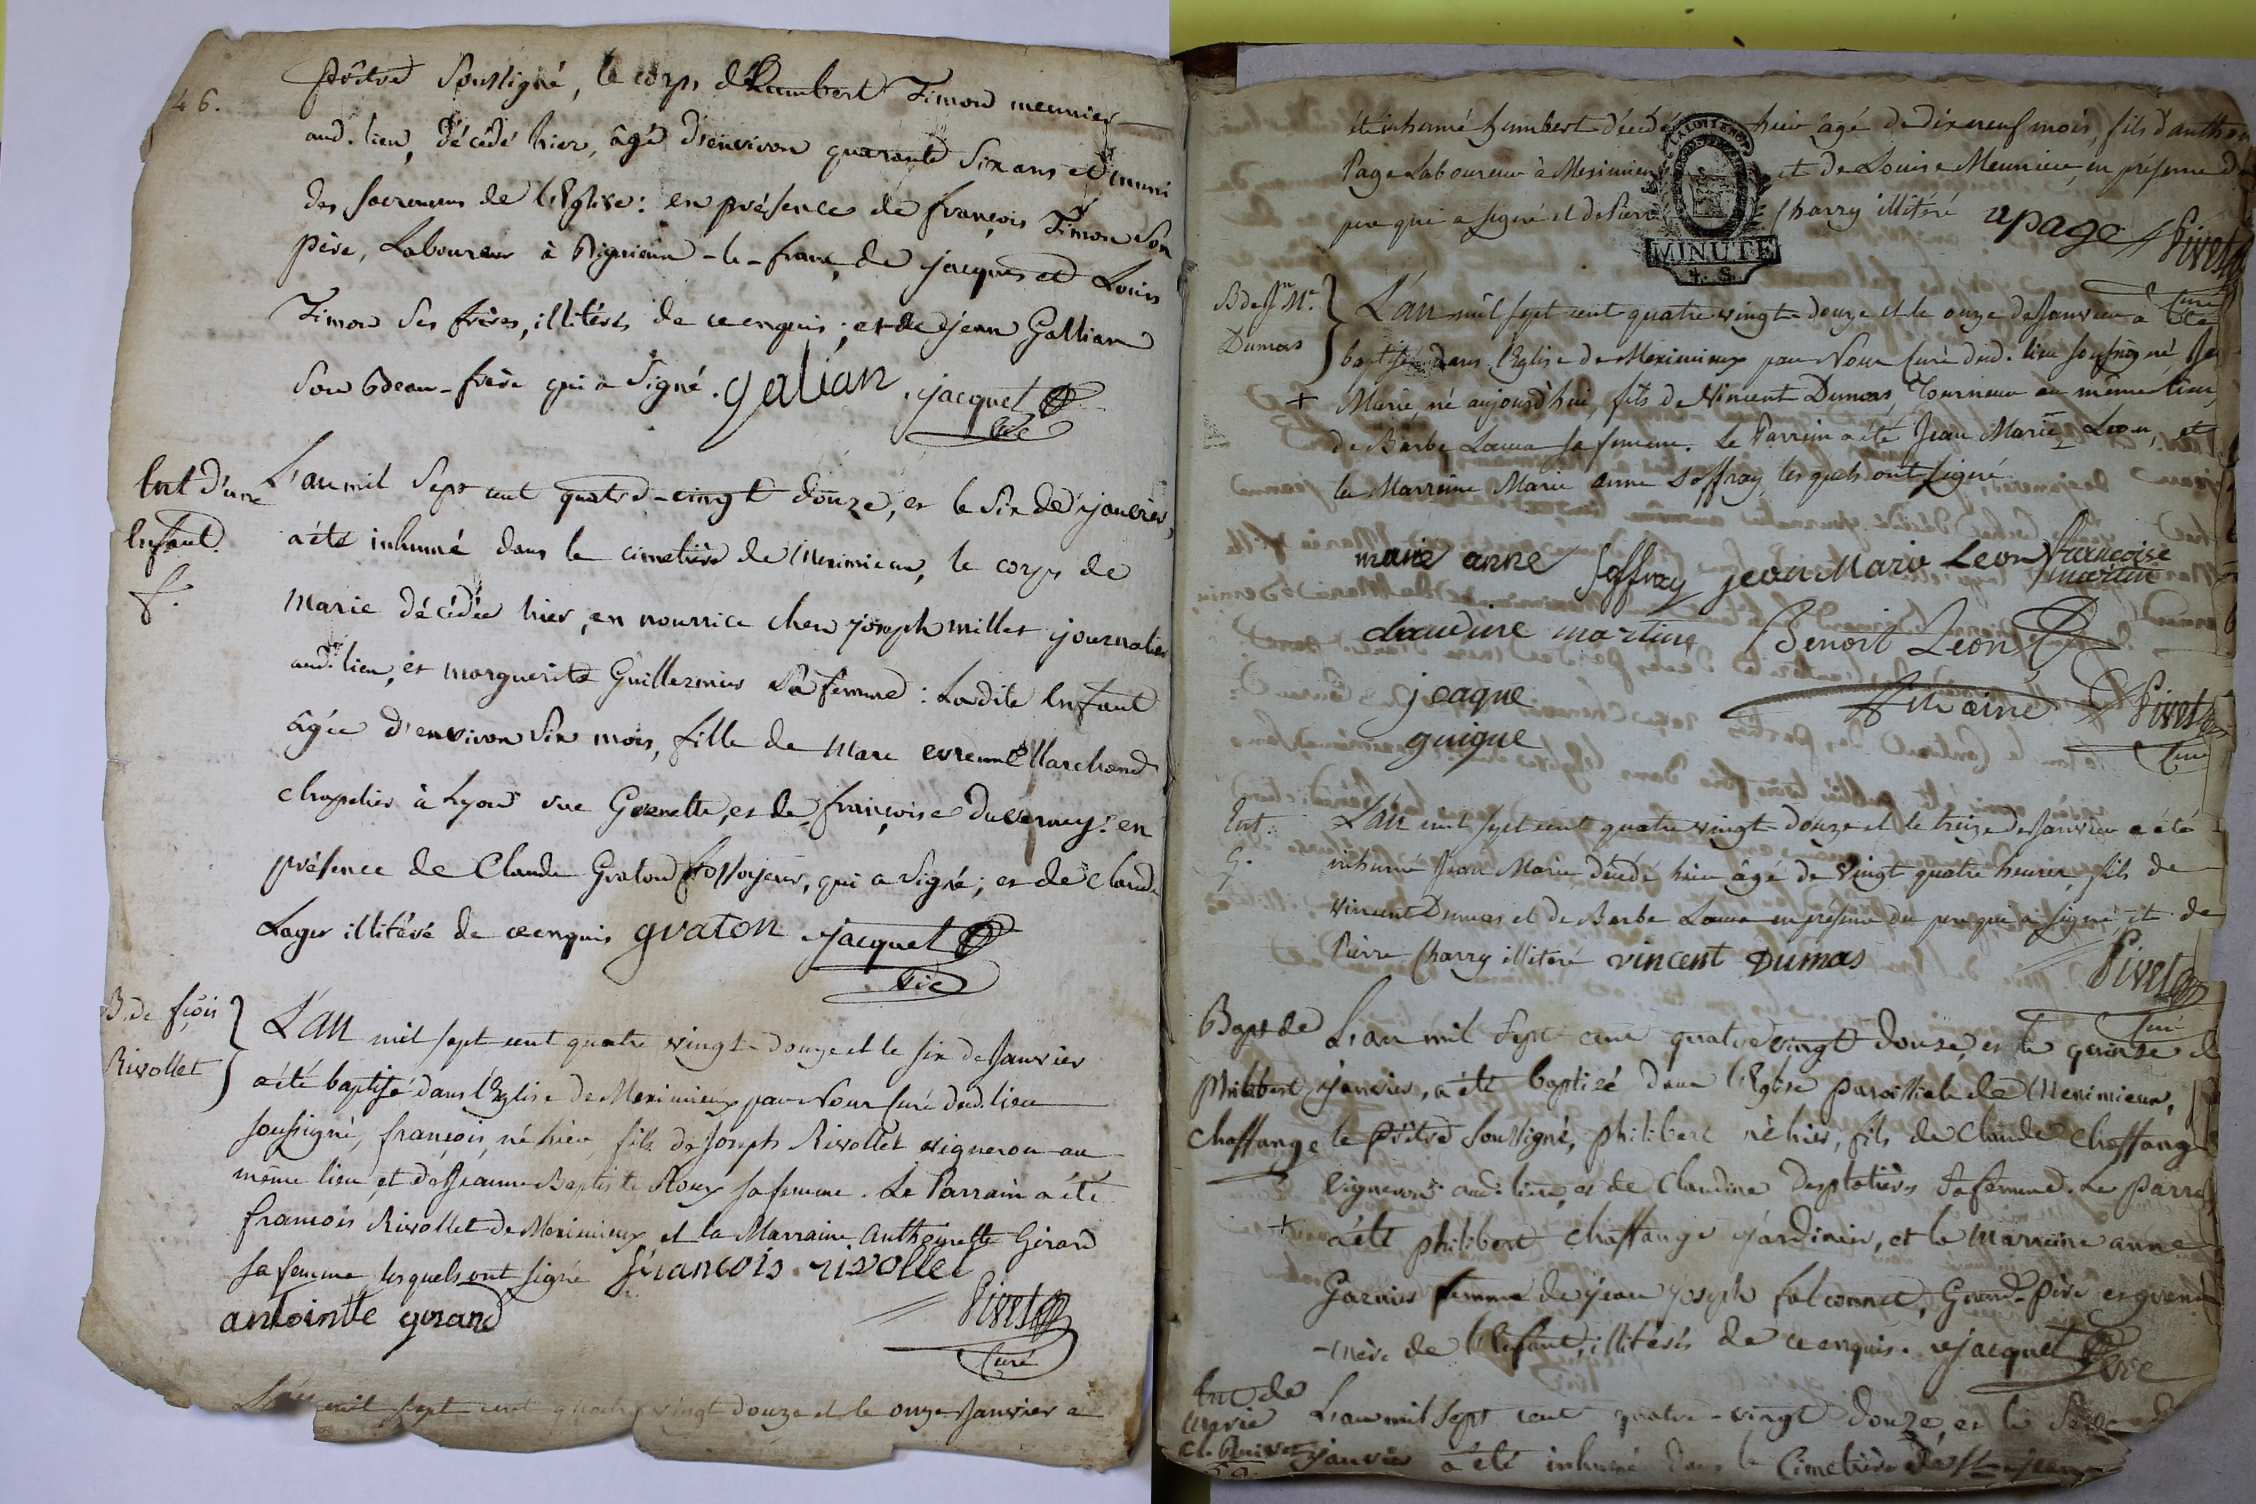 46.
prêtre soussigné, le corps d'humbert Timon meunier
aud. lieu, décédé hier, âgé d'environ quarante six ans et muni
des sacremens de l'Eglise: en présence de françois Timon son
père, Laboureur à Rignieux-le-franc, de jacques et Louis
Timon ses frères, illitérés de ce enquis; et de jean Gallian
son beau-frère qui a signé. galian jacquet
vic
Ent d'une
Enfant.
f.
L'an mil sept cent quatre-vingt douze, et le six de janvier,
a été inhumé dans le cimetière de Meximieux, le corps de
marie décédée hier, en nourrice chez joseph millet journalier
aud. lieu, et marguerite Guillermier sa femme: Ladite Enfant
âgée d'environ six mois, fille de Marc Marchand
chapelier à Lyon rue Grenette, et de françoise Duverney: en
présence de Claude Graton fossoyeur, qui a signé; et de claude
Lager illitéré de ce enquis graton jacquet
vic
B. de fçois
Rivollet
L'an mil sept cent quatre vingt-douze et le six de Janvier
a été baptisé dans l'Eglise de Meximieux par Nous Curé dud. lieu
soussigné, françois, né hier, fils de Joseph Rivollet vigneron au
même lieu, et de Jeanne Baptiste Roux sa femme. Le Parrain a été
francois Rivollet de Meximieux et la Marraine Anthoinette Girard
sa femme, lesquels ont signé francois rivollet
antointte girard Pivet
Curé
L'an mil sept cent quatre vingt douze et le onze Janvier a
été inhumé humbert décédé hier âgé de dix neuf mois, fils d'anthoi
Page Laboureur à Meximieux et de Louise Meunier, en présence du
pere qui a signé et de Pierre Charry illitéré apage Pivet
MINUTE
4. S.
Curé
B de Jn Me
Dumas
L'an mil sept cent quatre vingt-douze et le onze de Janvier a été
baptisé dans l'Eglise de Meximieux par Nous Curé dud. lieu soussigné Jea
+ Marie, né aujourd'hui, fils de Vincent Dumas, Tourneur au même lieu,
de Barbe Lauua sa femme. Le Parrain a été Jean Marie Leon, et
la Marraine Marie anne Soffray, lesquels ont signé
marie anne Soffray jean Marie Leon francoise
martin
claudine martine Benoit Leon
jeaque
guigue
Pivet
Curé
Ent.
G.
L'an mil sept cent quatre vingt-douze et le treize de Janvier a été
inhumé Jean Marie décédé hier âgé de vingt quatre heures, fils de
Vincent Dumas et de Barbe Lauua en présence du pere qui a signé, et de
Pierre Charry illitéré vincent Dumas Pivet
Curé
Bapt de
philibert
Chaffange
L'an mil sept cent quatre vingt douze, et le quinze de
janvier, a été baptisé dans l'Eglise paroissiale de Meximieux,
le prêtre soussigné, philibert né hier, fils de Claude Chaffange
vigneron aud. lieu, et de Claudine Desplatières sa femme. Le parra
+ a été philibert Chaffange jardinier, et la Marreine anne
Garnier femme de jean joseph falconnet, Grand-père et grand
-mère de l'Enfant, illitérés de ce enquis. jacquet
vic
Ent de
Marie
L'an mil sept cent quatre-vingt douze, et le
janvier a été inhumé dans le Cimetière de St jean